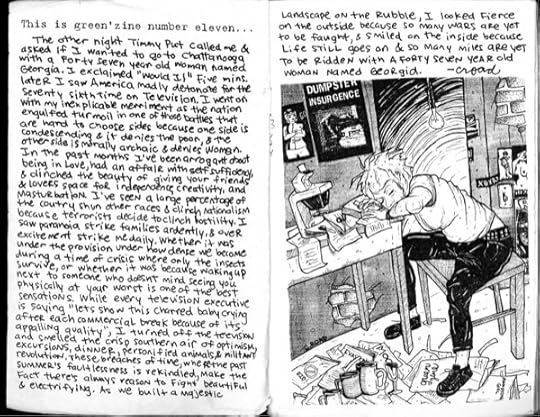 This is green'zine number eleven...
The other night Timmy Put called me &
asked if I wanted to go to Chattanooga
with a forty seven year old woman named
Georgia. I exclaimed "Would I!" Five mins.
later I saw America madly detonate for the
seventy sixth time on Television. I went on
with my inexplicable merriment as the nation
engulfed turmoil in one of those battles that
are hard to choose sides because one side is
condescending & it denies the poor, & the
other side is morally archaic & denies women.
In the past months I've been arrogant about
being in love, had an affair with self sufficiency,
& clinched the beauty of giving your friends
& lovers space for independence, creativity, and
masturbation. I've seen a large percentage of
the country shun other races & clinch nationalism
because terrorists decide to clinch hostility. I
saw paranoia strike families ardently, & over
excitement strike me daily. Whether it was
under the provision under how dense we become
during a time of crisis where only the insects
survive, or whether it was because waking up
next to someone who doesn't mind seeing you
physically at your worst is one of the best
sensations. While every television executive
is saying "lets show this charred baby crying
after each commercial break because of its
appalling quality", I turned off the television
and smelled the crisp southern air of optimism,
excursions, dinner, personified animals, & military
revolution. These breaches of time, where the past
summer's faultlessness is rekindled, make the
fact there's always reason to fight beautiful
& electrifying. As we built a majestic
landscape on the rubble, I looked fierce
on the outside because so many wars are yet
to be faught, & smiled on the inside because
life still goes on & so many miles are yet
to be ridden with a forty seven year old
woman named Georgia. -Cread
DUMPSTER
INSURGENCE